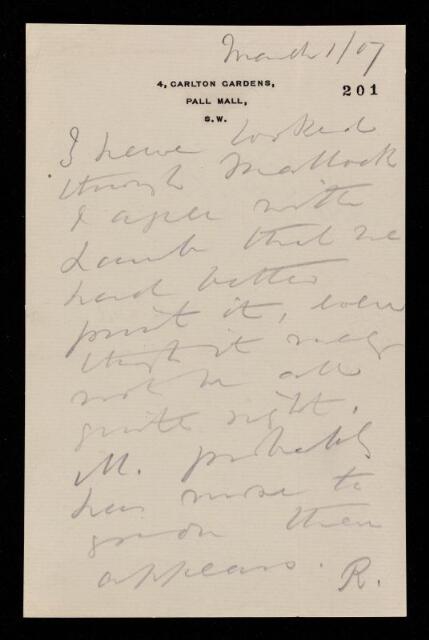 March 1/07
4, CARLTON GARDENS,
PALL MALL,
S.W.
201
I have looked
through Mallock
I agree with
Lamb that we
had better
print it, even
though it may
not be all
quite right.
M. probably
has more to
go on than
appears.
R.